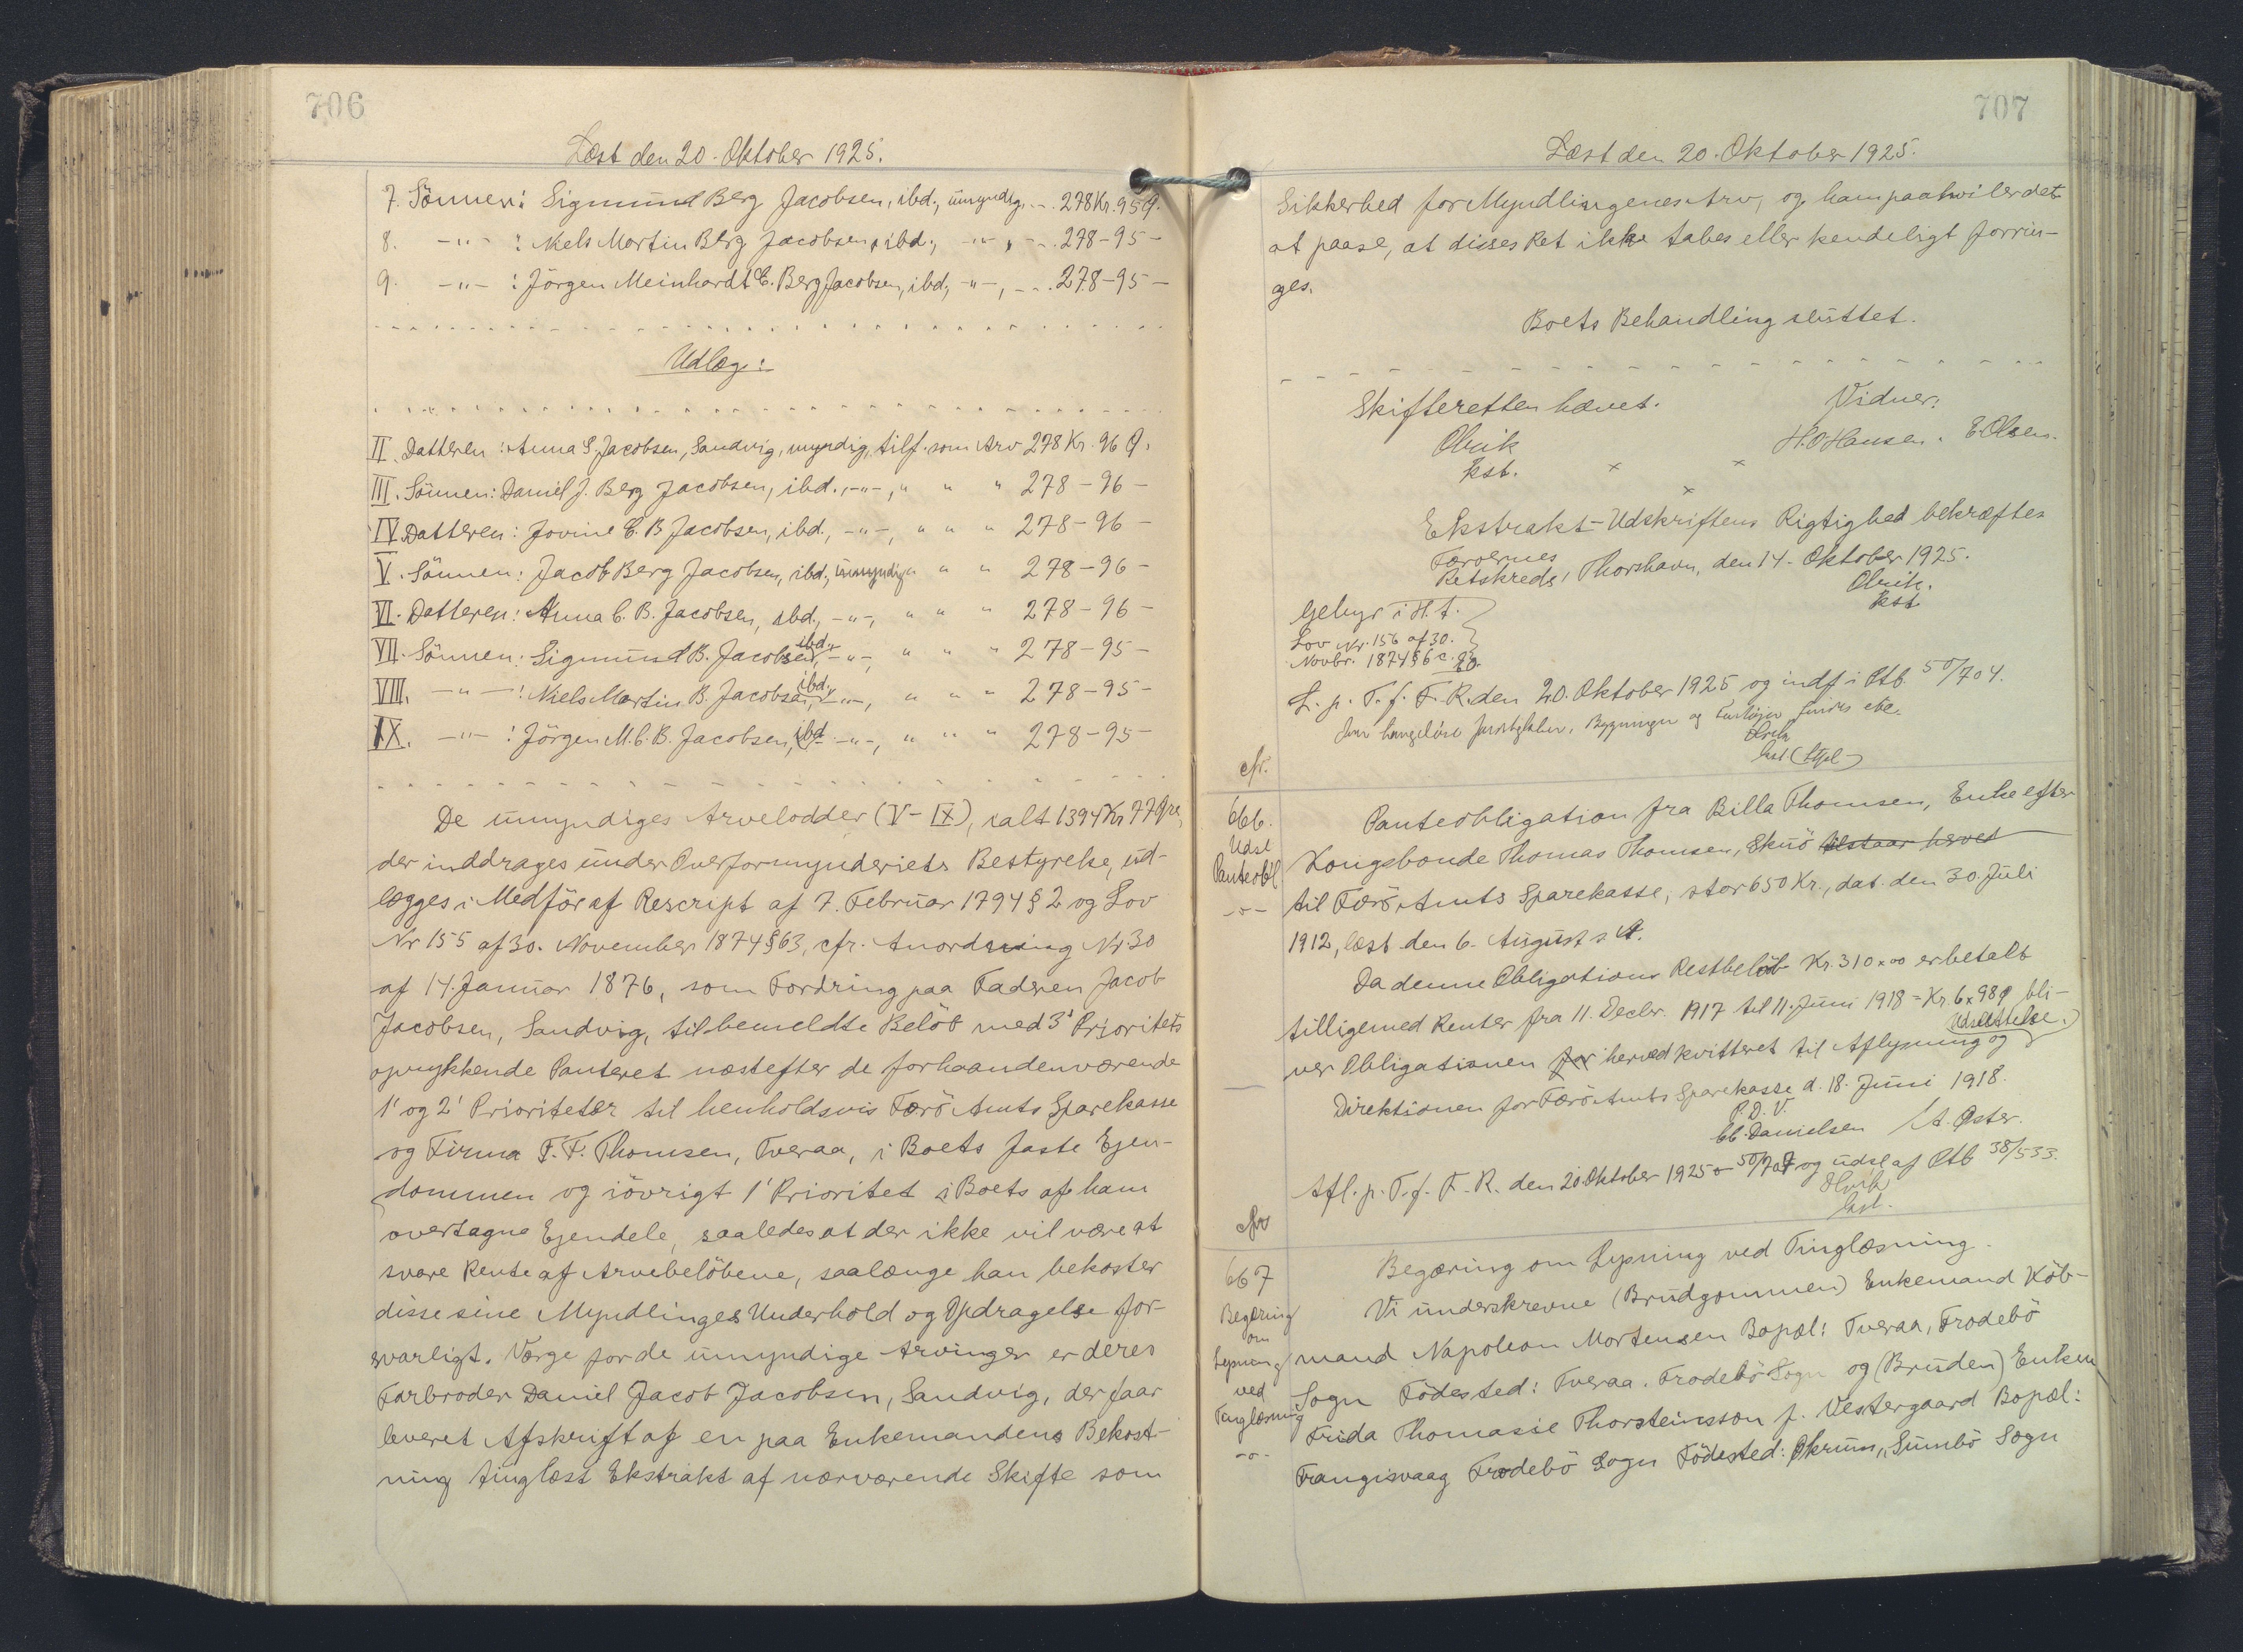 706
Læst den 20. Oktober 1925.
7. Sönnen: Sigmund Berg Jacobsen, ibd., umyndig, - . 278 Kr. 95 Ø.
8. -"- : Niels Martin Berg Jacobsen, ibd., -"-, - . 278 - 95 -
9. -"- : Jörgen Meinhardt C. Berg Jacobsen, ibd., -"-, - . 278 - 95 -
Udlæg:
II. Datteren: Anna S. Jacobsen, Sandvig, myndig, tilf. som Arv 278 Kr. 96 Ø.
III. Sönnen: Daniel J. Berg Jacobsen, ibd., -"-, " " " 278 - 96 -
IV. Datteren: Jovine C. B. Jacobsen, ibd., -"-, " " " 278 - 96 -
V. Sönnen: Jacob Berg Jacobsen, ibd., umyndig " " " 278 - 96 -
VI. Datteren: Anna C. B. Jacobsen, ibd., -"-, " " " 278 - 96 -
VII. Sönnen: Sigmund B. Jacobsen, ibd., -"-, " " " 278 - 95 -
VIII. -"- : Niels Martin B. Jacobsen, ibd., -"-, " " " 278 - 95 -
IX. -"- : Jörgen M. C. B. Jacobsen, ibd. -"-, " " " 278 - 95 -
De umyndiges Arvelodder (V - IX), ialt 1394 Kr 77 Øre,
der inddrages under Overformynderiets Bestyrelse, ud-
lægges i Medför af Rescript af 7. Februar 1794 § 2 og Lov
Nr 155 af 30. November 1874 § 63, cfr. Anordning Nr 30
af 14. Januar 1876, som Fordring paa Faderen Jacob
Jacobsen, Sandvig, til bemeldte Belöb med 3' Prioritets
oprykkende Panteret næstefter de forhaandenværende
1' og 2' Prioriteter til henholdsvis Færö Amts Sparekasse
og Firma T. F. Thomsen, Tveraa, i Boets faste Ejen-
dommen og iövrigt 1' Prioritet i Boets af ham
overtagne Ejendele, saaledes at der ikke vil være at
svare Rente af Arvebelöbene, saalænge han bekoster
disse sine Myndlinges Underhold og Opdragelse for-
svarligt. Værge for de umyndige Arvinger er deres
Farbroder Daniel Jacob Jacobsen, Sandvig, der faar
leveret Afskrift af en paa Enkemandens Bekost-
ning tinglæst Ekstrakt af nærværende Skifte som
707
Læst den 20. Oktober 1925.
Sikkerhed for Myndlingenes Arv, og ham paahviler det
at paase, at disses Ret ikke tabes eller kendeligt forrin-
ges.
Boets Behandling sluttet.
Skifteretten hævet. Vidner:
Olrik H. O Hansen. E. Olsen.
kst.
Ekstrakt-Udskriftens Rigtighed bekræftes
Færøernes
Retskreds, Thorshavn, den 14. Oktober 1925.
Olrik.
kst
Gebyr i H. t.
Lov Nr. 156 af 30.
Novbr. 1874 § 6 c.
L. p. T. f. F. R. den 20. Oktober 1925 og indf i Ptb. 50/704.
Olrik
kst
cfr.
666.
Udsl
Panteobl
-o-
Panteobligation fra Billa Thomsen, Enke efter
Kongsbonde Thomas Thomsen, Skuö tilstaar herved
til Færö Amts Sparekasse, stor 650 Kr., dat. den 30. Juli
1912, læst den 6. August s A.
Da denne Obligations Restbelöb Kr. 310 x 00 er betalt
tilligemed Renter fra 11. Decbr. 1917 til 11. Juni 1918 = Kr. 6 x 98 Ø bli-
ver Obligationen for herved kvitteret til Aflysning og Udslettelse.
Direktionen for Færö Amts Sparekasse d. 18. Juni 1918.
P. D. V.
Danielsen A. Øster.
Afl. p. T. f. F. R. den 20 Oktober 1925 o 50/707 og udsl af Ptb 38/533.
Olrik
kst.
cfr
667
Begæring
om
Lysning
ved
Tinglæsning
-o-
Begæring om Lysning ved Tinglæsning.
Vi underskrevne (Brudgommen) Enkemand Köb-
mand Napoleon Mortensen Bopæl: Tveraa, Frodebö
Sogn Födested: Tveraa. Frodebö Sogn og (Bruden) Enken
Frida Thomasie Thorsteinsson f. Vestergaard Bopæl:
Frangisvaag Frodebö Sogn Födested: Økrum, Sumbö Sogn